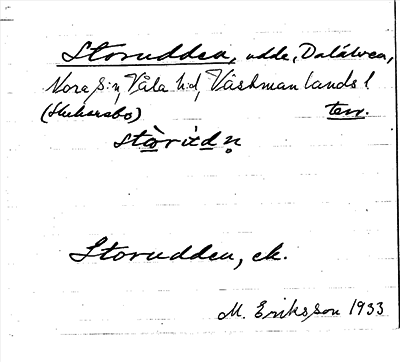 Storudden, udde, Dalälven,
Nora s:n, Våla h:d, Västmanlands l
(Huhersbo) terr.
stòrud n̥
Storudden, ek.
M. Eriksson 1933